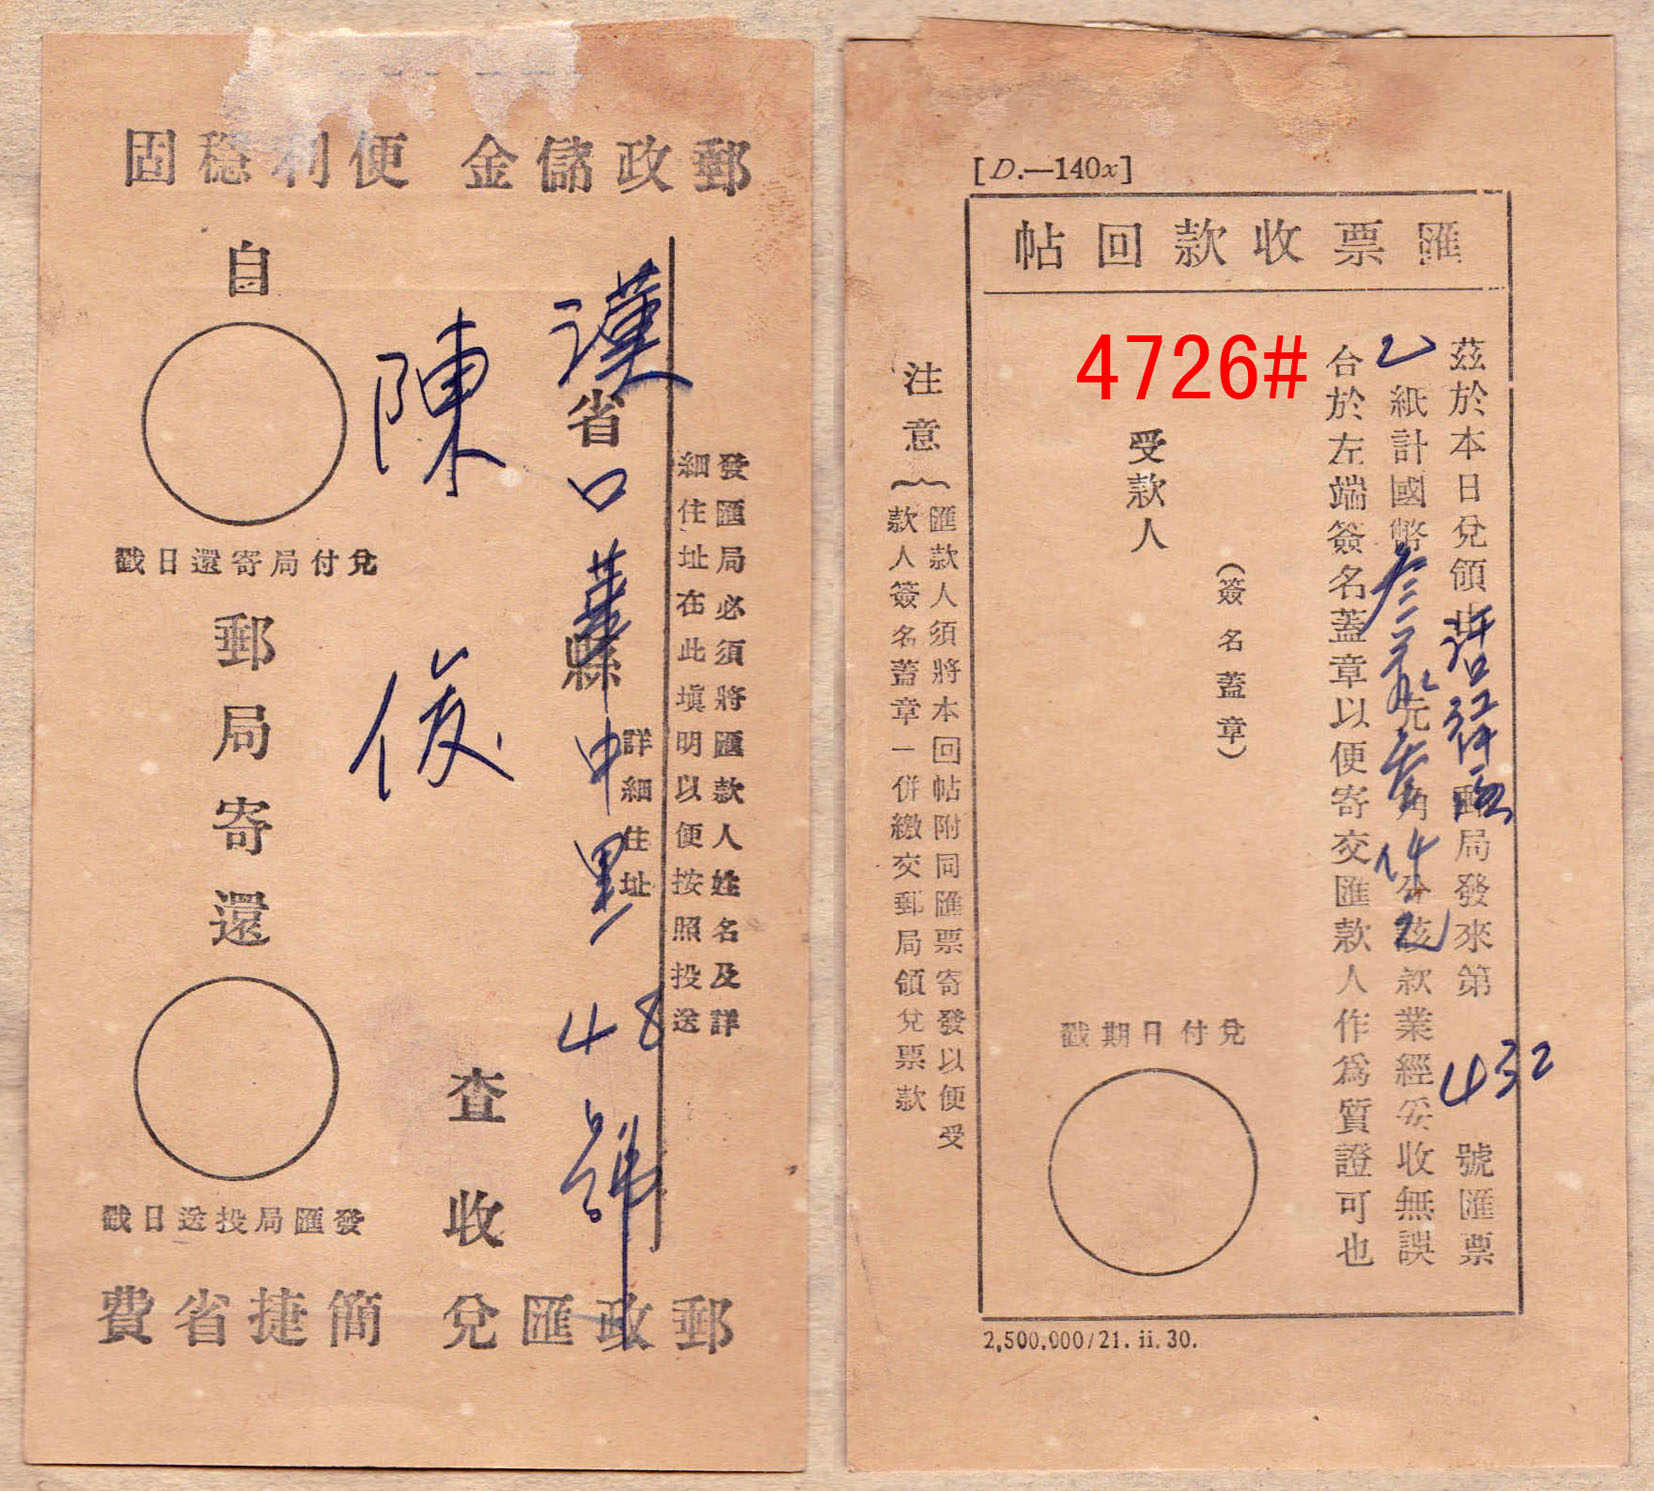 郵政儲金 便利穩固
發匯局必須將匯款人姓名及詳
細住址在此填明以便按照投送
漢省口華縣中里48號
詳細住址
陳俊
查收
自
兌付局寄還日戳
郵局寄還
發匯局投送日戳
郵政匯兌 簡捷省費
[D.—140x]
匯票收款回帖
茲於本日兌領 郵局發來第432號匯票
乙紙計國幣 元 角 分該款業經妥收無誤
台於左端簽名蓋章以便寄交匯款人作為質證可也
(簽名蓋章)
4726#
受款人
兌付日期戳
注意
匯款人須將本回帖附同匯票寄發以便受
款人簽名蓋章一併繳交郵局領兌票款
2,500,000/21. ii. 30.